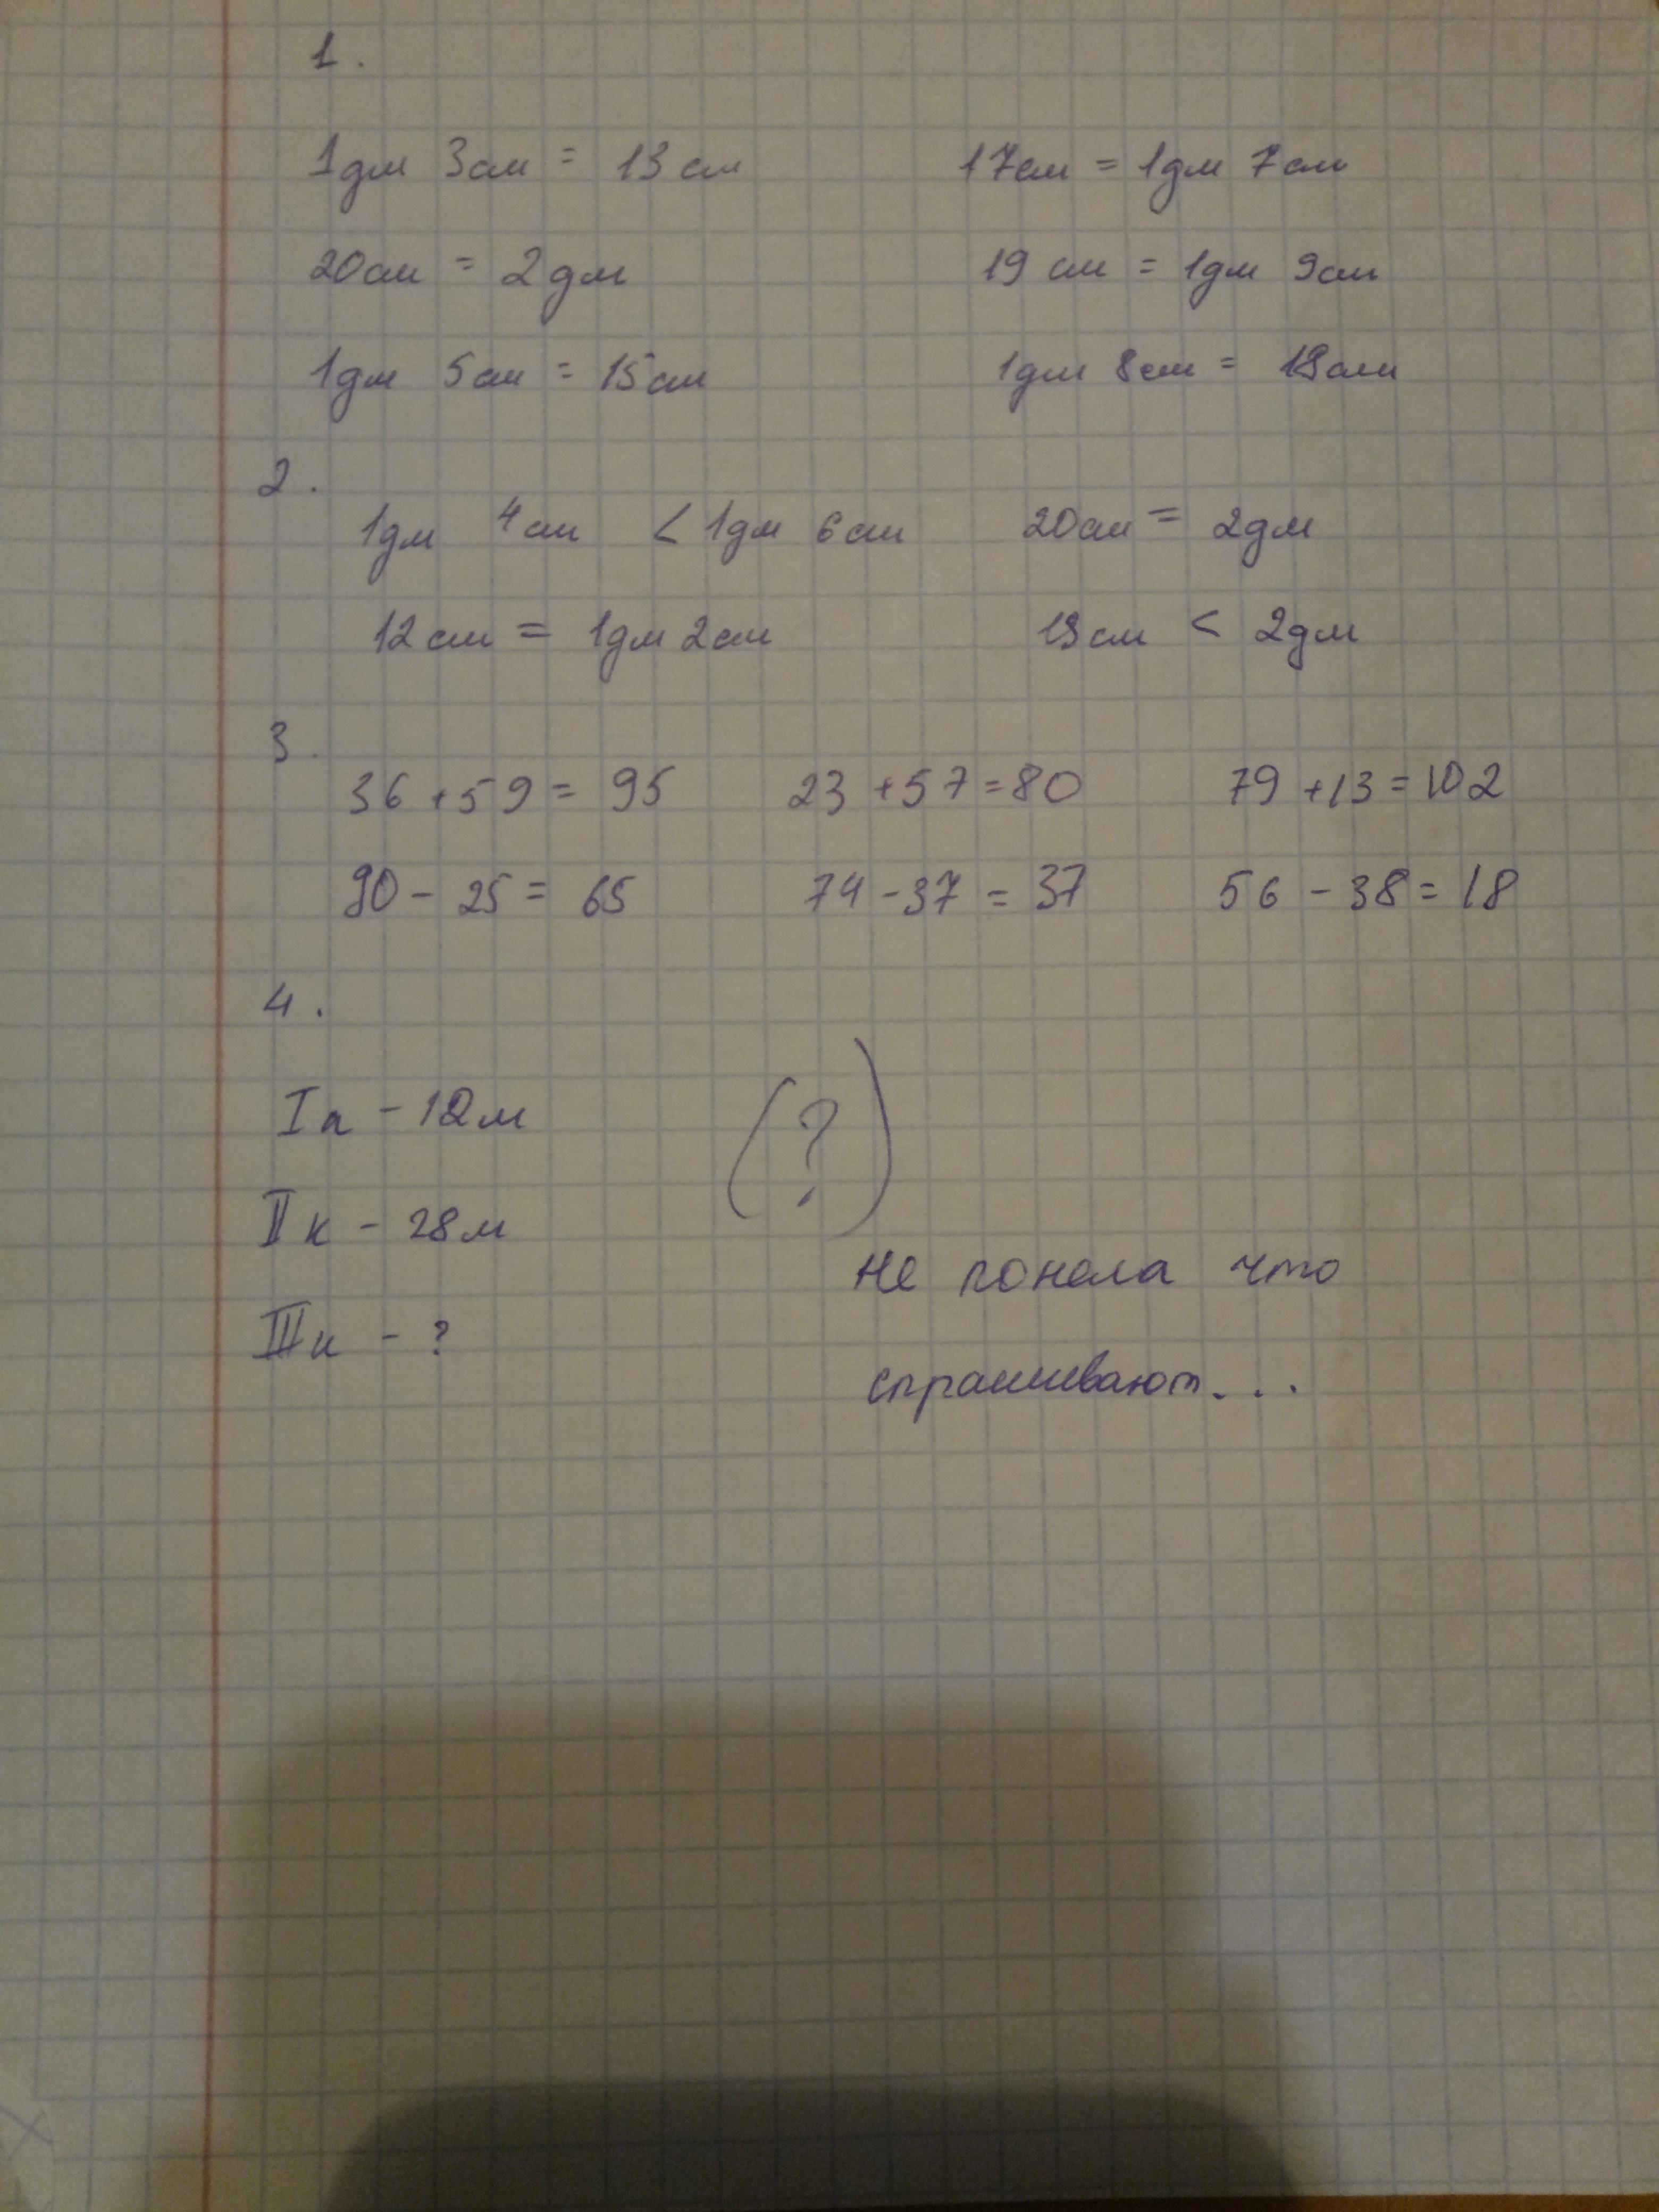 1.
1дм 3см = 13см 17см = 1дм 7см
20см = 2дм 19 см = 1дм 9см
1дм 5см = 15см 1дм 8см = 18см
2.
1дм 4см < 1дм 6см 20см = 2дм
12см = 1дм 2см 19см < 2дм
3.
36 + 59 = 95 23 + 57 = 80 79 + 13 = 102
90 - 25 = 65 74 - 37 = 37 56 - 38 = 18
4.
I к - 12м (?)
II к - 28м
не понела что
III к - ?
спрашивают...